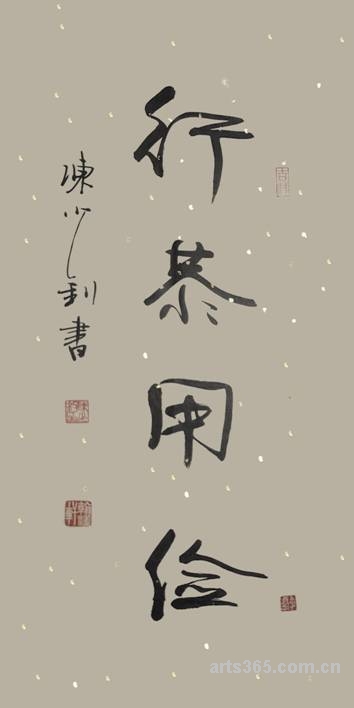 行恭用俭
陳少釗書
arts365.com.cn